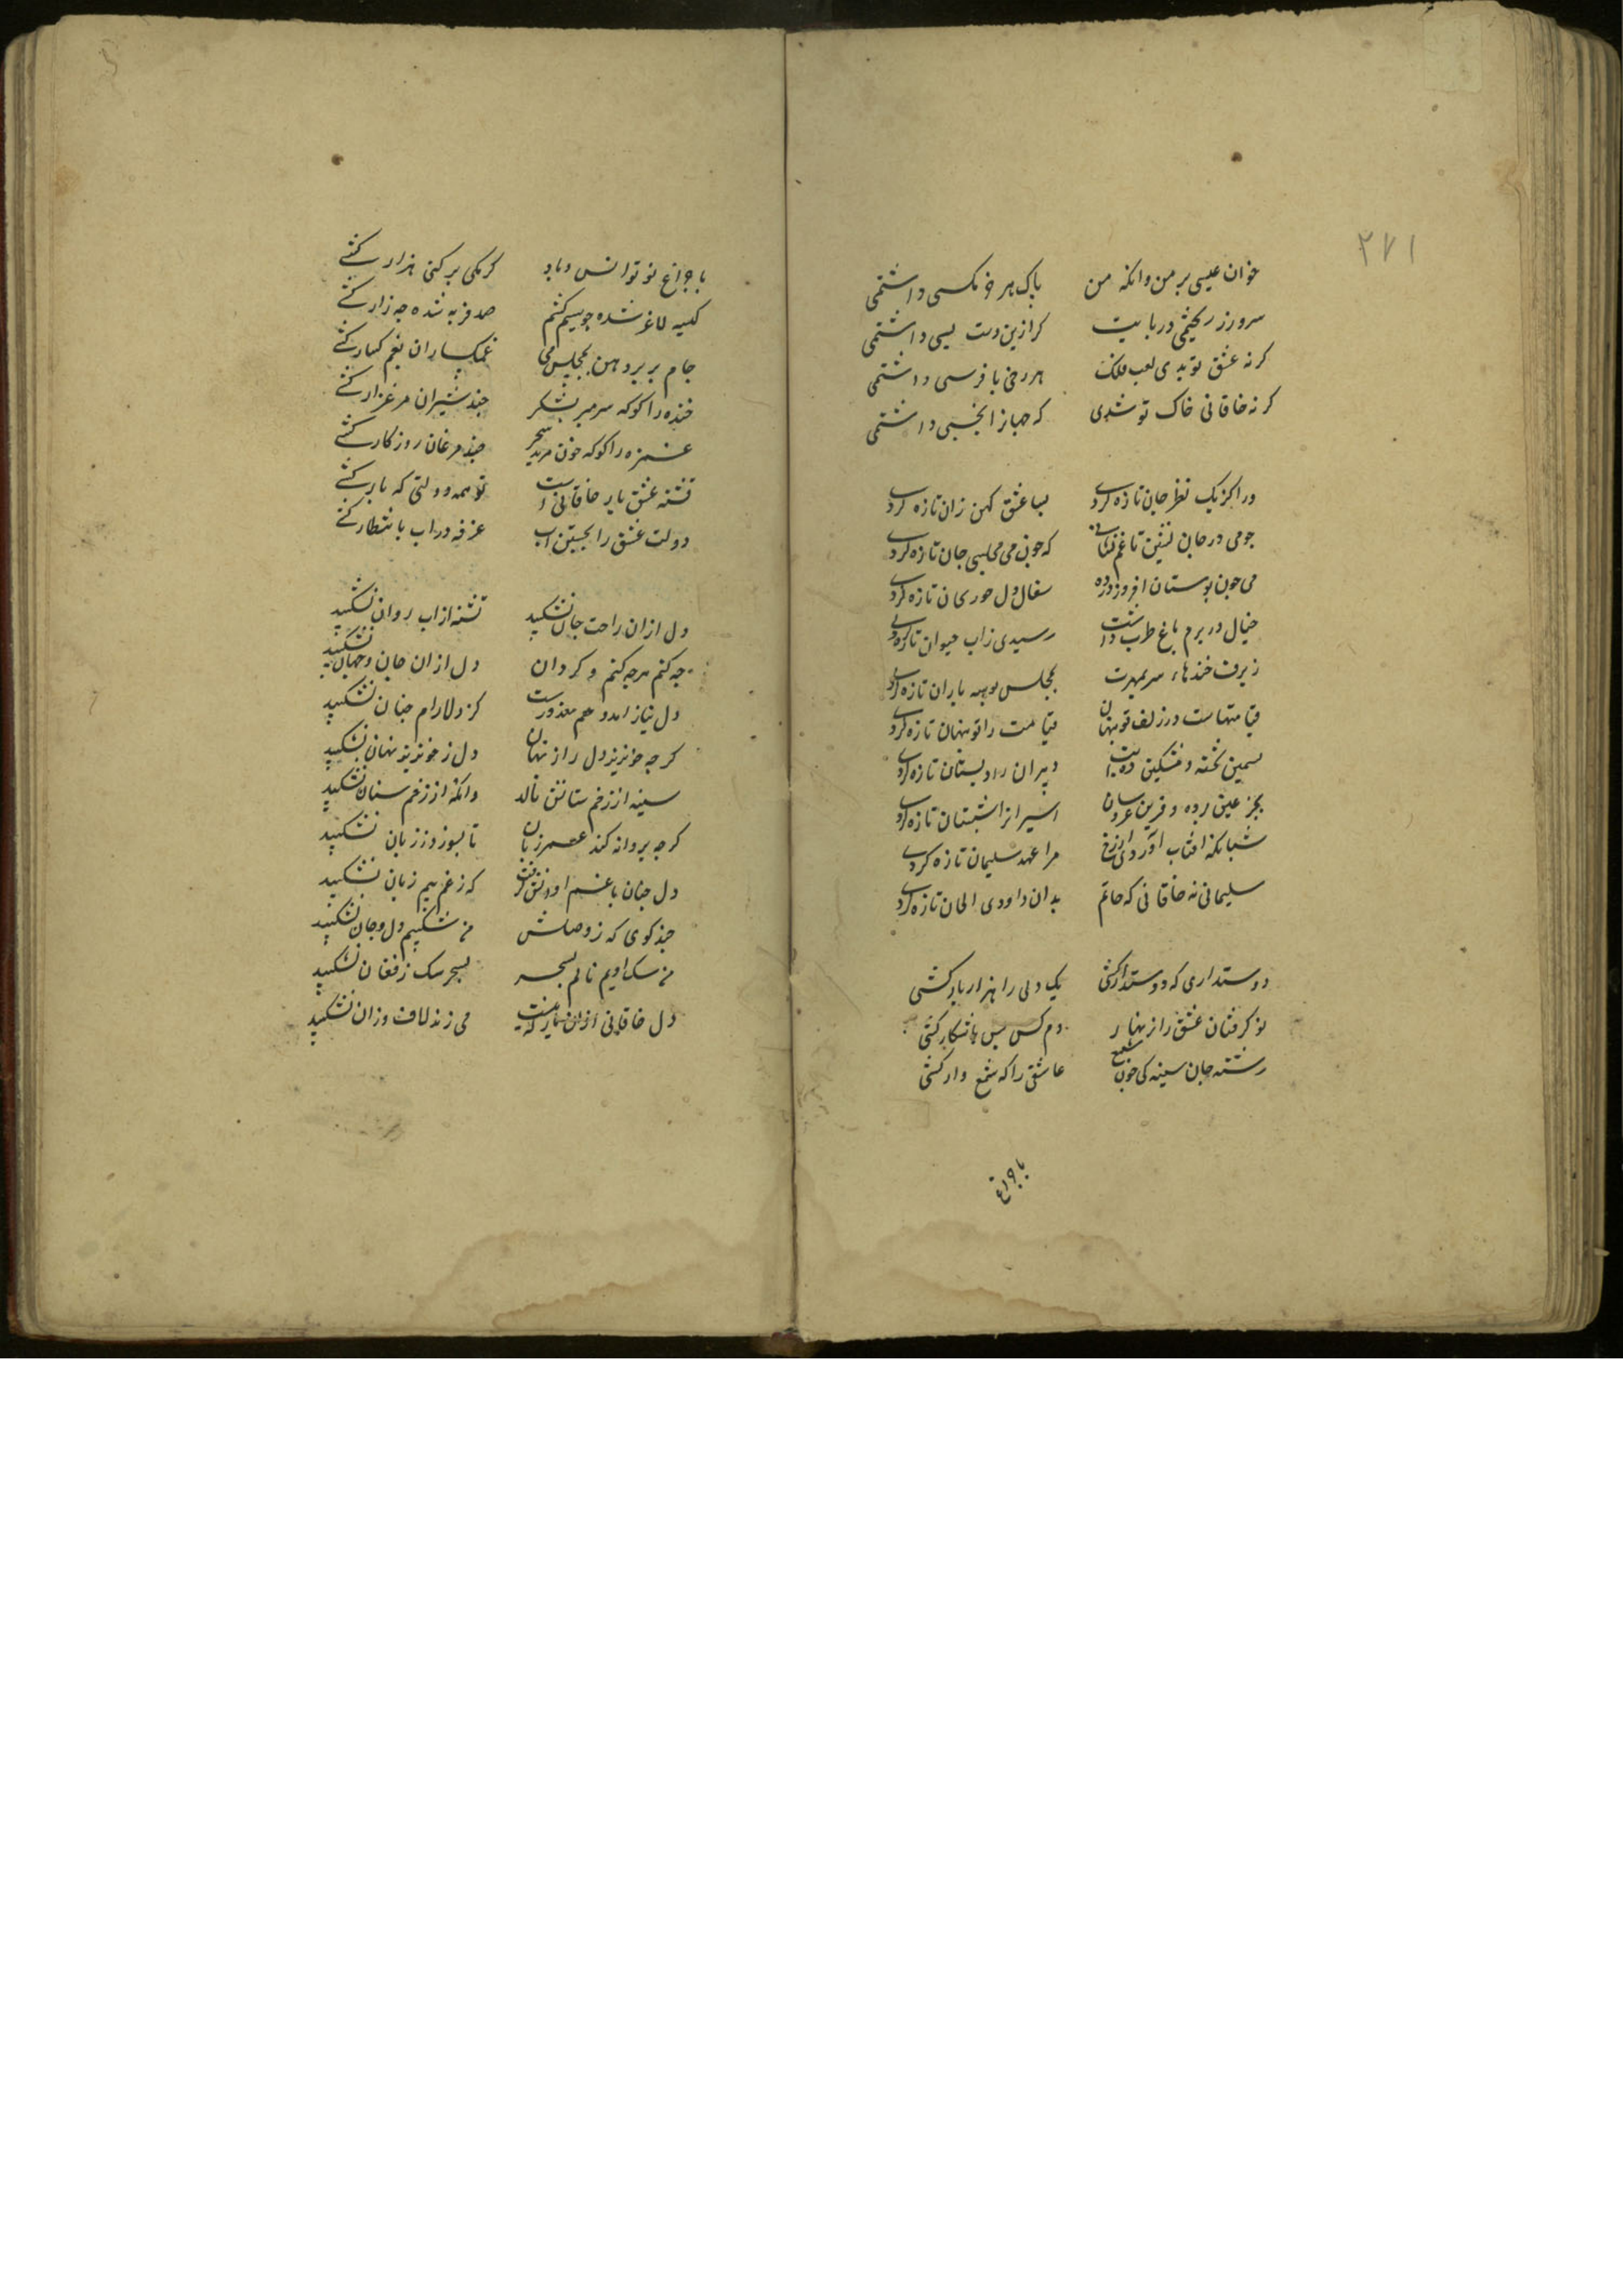 ۲۷۱
خوان عیسی بر من وانکه من باک هر خرمکسی داشتمی
سر و زر ریختمی در پایت کر ازین دست بسی داشتمی
کر نه عشق تو بدی لعب فلک هر رخی با فرسی داشتمی
کر نه خاقانی خاک تو شدی که جهان را بخسی داشتمی
در اکز یک نظر جان تازه کردی بسا عشق کهن زان تازه کردی
جو می در جان نشین تا غم که جون می مجلس جان تازه کردی
می جون بوستان افروز ده سفال دل جو ریحان تازه کردی
خیال در برم باغ طرب داشت رسیدی زاب حیوان تازه کردی
ز برف خندهاء سر بمهرت مجلس بوسه یاران تازه کردی
قیامتهاست در زلف تو پنهان قیامت را تو پنهان تازه کردی
بسمین تخته و مشکین دبیران را دبستان تازه کردی
بجز عین برده و قرین عروسان اسیران را شبستان تازه کردی
شبانکه افتاب آوردی از رخ مرا عهد سلیمان تازه کردی
سلیمانی نه خاقانی که خاتم بدان داودی الحان تازه کردی
دوستداری که دوستدار کشی یک دلی را هزار بار کشی
نو کرفتان عشق را پنهان دم کس بس باشکار کشی
رشته جان سینه کی جون شمع عاشقی را که شمع وار کشی
با جراغ
با جراغ نو توانس و باد کر یکی بر کنی هزار کشی
کیسه لاغر شده جو سیم کشم صد فربه شده جه زار کشی
جام بر بر دهن بمجلس می غمکساران بغم کسار کشی
خنده را کو که سر مبر بشکر جند شیران مرغزار کشی
غمزه را کو که خون مریز سحر جند مرغان روزکار کشی
تشنه عشق یار خاقانی است تو همه دولتی که یار کشی
دولت عشق را بجستن اب غرفه در اب بانتظار کشی
دل از ان راحت جان نشکیبد تشنه از اب روان نشکیبد
جه کنم هرجه کنم و کر دان دل از ان جان و جهان نشکیبد
دل نیاز آمد و هم معذورست کز دلارام جنان نشکیبد
کر جه خونریز دل راز نهان دل ز خونریز نهان نشکیبد
سینه از زخم سنانش نالد وانکه از زخم سنان نشکیبد
کر جه بروانه کند عمر زیان تا بسوز و ز زیان نشکیبد
دل جنان با غم او انش کرفت که ز غم هیچ زمان نشکیبد
جند کوی که ز وصلش من شکیبم دل و جان نشکیبد
من سک اویم نالم بسحر بسحر سک ز فغان نشکیبد
دل خاقانی ازان یار که نیست می زند لاف وزان نشکیبد